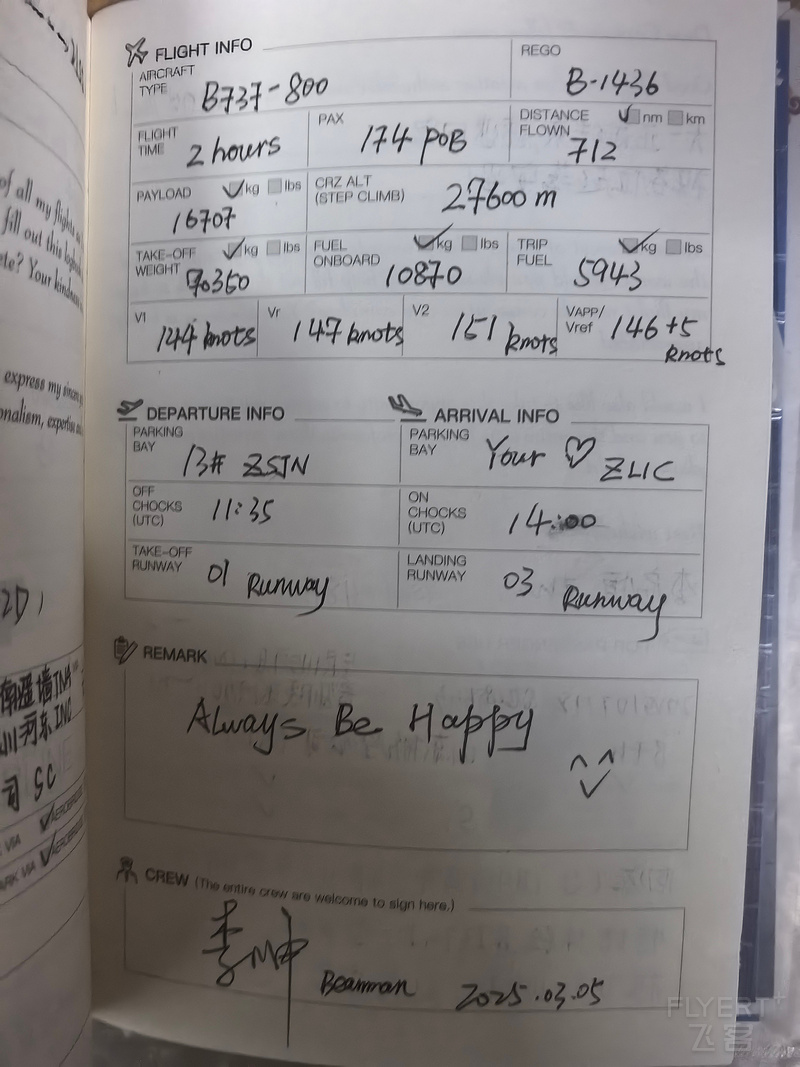 of all my flights
fill out this logbook
te? Your kindness
express my sincere
onalism, expertise
2D)
南遥墙TNA
川河东INC
司 SC
VIA AEROBRIDGE
ARK VIA AEROBRIDGE
FLIGHT INFO
AIRCRAFT TYPE B737-800
REGO B-1436
FLIGHT TIME 2 hours
PAX 174 POB
DISTANCE FLOWN nm km 712
PAYLOAD kg lbs 16707
CRZ ALT (STEP CLIMB) 27600 m
TAKE-OFF WEIGHT kg lbs 70350
FUEL ONBOARD kg lbs 10870
TRIP FUEL kg lbs 5943
V1 144 knots
Vr 147 knots
V2 151 knots
VAPP/Vref 146+5 knots
DEPARTURE INFO
ARRIVAL INFO
PARKING BAY 13# ZSJN
PARKING BAY Your ♡ ZLIC
OFF CHOCKS (UTC) 11:35
ON CHOCKS (UTC) 14:00
TAKE-OFF RUNWAY 01 Runway
LANDING RUNWAY 03 Runway
REMARK
Always Be Happy
CREW (The entire crew are welcome to sign here.)
李坤 Beamman 2025.03.05
FLYERT+
飞客